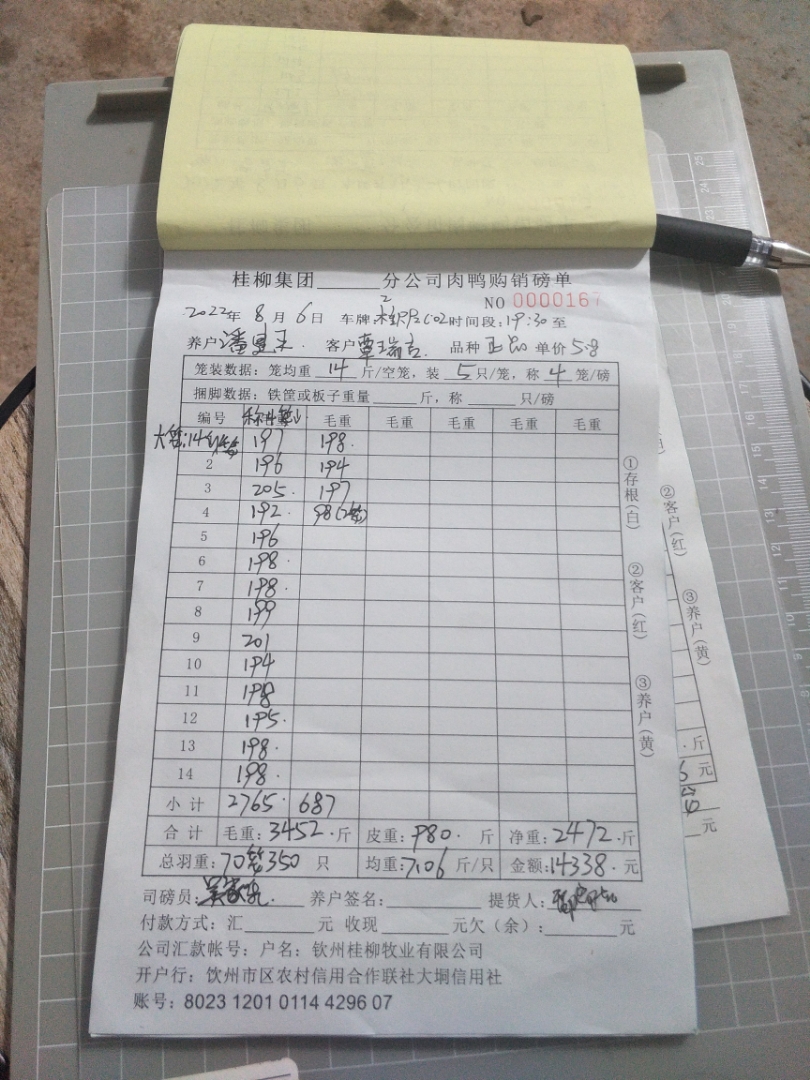 桂柳集团______分公司肉鸭购销磅单
NO 0000167
2022年 8月 6日 车牌: 时间段: 19:30至
养户: 潘 客户: 覃瑞吉 品种 正品 单价 5.8
笼装数据: 笼均重 14 斤/空笼, 装 5 只/笼, 称 4 笼/磅
捆脚数据: 铁筐或板子重量______斤, 称______只/磅
编号 毛重 毛重 毛重 毛重 毛重
大笼:14 197 198
2 196 194
3 205 197
4 192 98(2笼)
5 196
6 198
7 198
8 199
9 201
10 194
11 198
12 195
13 198
14 198
小计 2765 687
合计 毛重: 3452斤 皮重: 980斤 净重: 2472斤
总羽重: 70笼350只 均重: 7.06斤/只 金额: 14338元
司磅员: 养户签名: 提货人:
付款方式: 汇______元 收现______元欠(余):______元
公司汇款帐号: 户名: 钦州桂柳牧业有限公司
开户行: 饮州市区农村信用合作联社大垌信用社
账号: 8023 1201 0114 4296 07
①存根(白) ②客户(红) ③养户(黄)
②客户(红)
③养户(黄)
斤
元
元